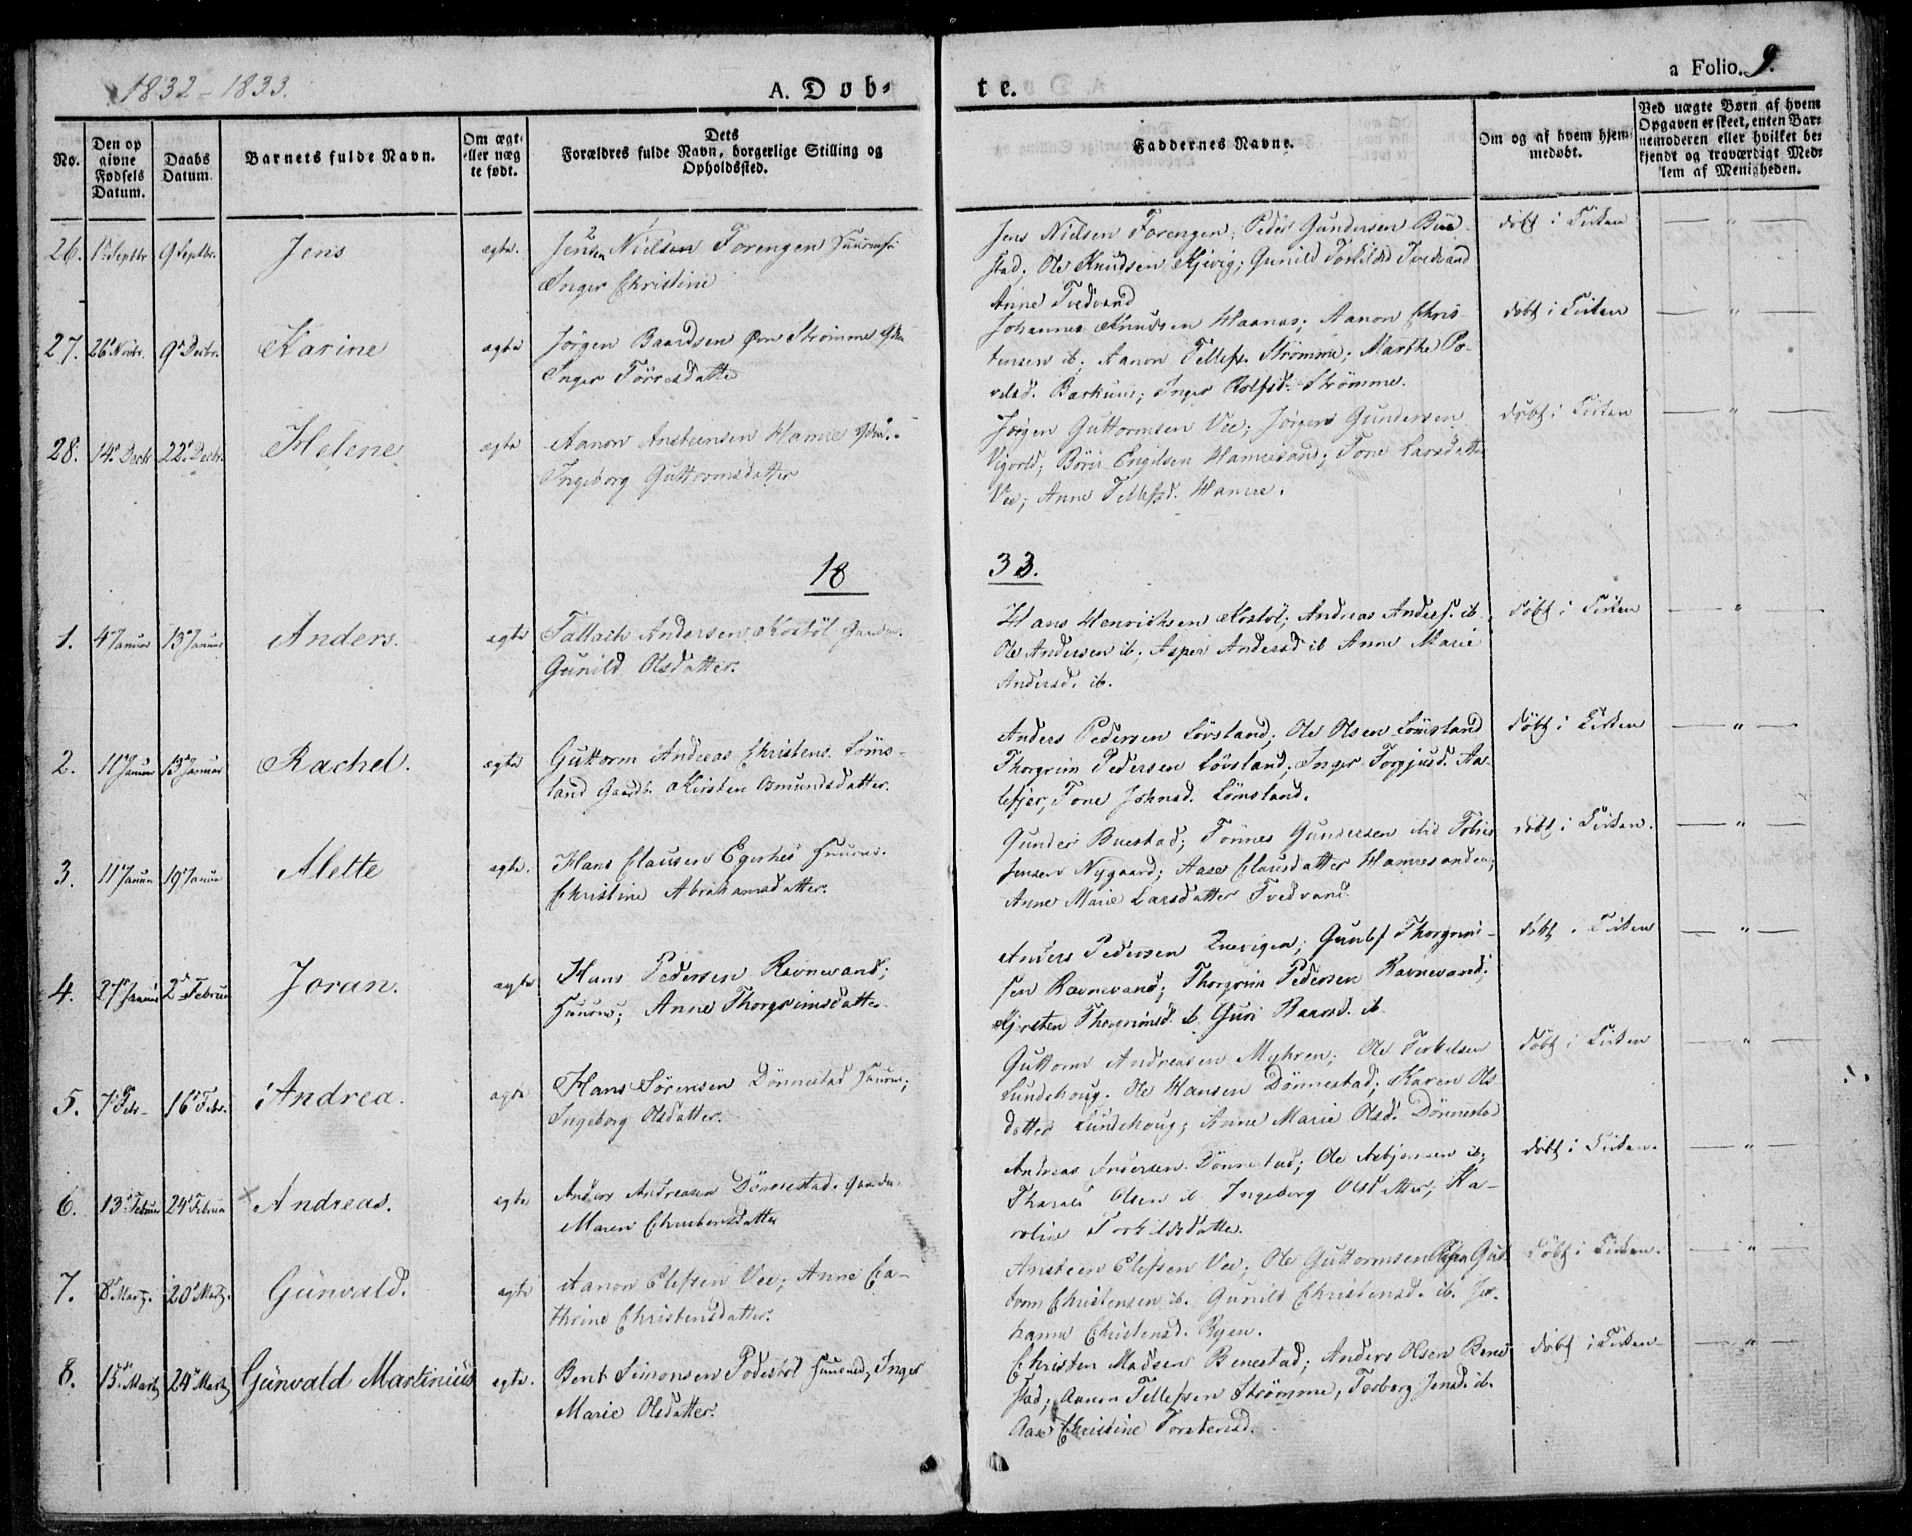 1832-1833.
A. Døb-
te.
a Folio. 9.
No.
Den op
givne
Fødsels
Datum.
Daabs
Datum.
Barnets fulde Navn.
Om ægte
eller næg
te født.
Dets
Forældres fulde Navn, borgerlige Stilling og
Opholdssted.
Faddernes Navne.
Om og af hvem hjem-
medøbt.
Ved uægte Børn af hvem
Opgaven er skeet, enten Bar-
nemoderen eller hvilket be-
kjendt og troværdigt Med-
lem af Menigheden.
26. 1 Septbr 9 Septbr. Jens ægte.
Jens Nielsen Forengen
Inger Christine
Jens Nielsen Forengen; Peder Gundersen Bue-
stad; Ole Knudsen Kjevig; Gunild Torkildsd Tvedvand
Anne Tvedvand
døbt i Kirken
27. 26 Novbr. 9 Decbr. Karine ægte
Jørgen Baardsen Øvre Strømme
Inger Tørresdatter
Johannes Knudsen Haanas; Aanon Chris
tensen ib; Aanon Tellefs. Strømme; Marthe Po-
velsd. Barkuus; Inger Rolfsd. Strømme.
døbt i Kirken
28. 14 Decbr 22 Decbr. Helene ægte
Aanon Ansteensen Hamre
Ingeborg Guttormsdatter
Jørgen Guttormsen Vee; Jørgen Gundersen
Vigvold; Børe Engelsen Hamresand; Tone Larsdatter
Vee; Anne Tellefsd. Hamre.
døbt i Kirken
18
33.
1. 4 Januar 13 Januar Anders. ægte
Tallach Andersen Kostøl Gaardm.
Gunild Olsdatter.
Hans Henrichsen Kostøl; Andreas Anders. ib.
Ole Andersen ib; Asper Andersd ib Anne Marie
Andersd. ib.
døbt i Kirken
2. 11 Januar 13 Januar Rachel. ægte
Guttorm Andreas Christens. Løms-
land Gaardb. Kirsten Omundsdatter.
Anders Pedersen Løvsland; Ole Olsen Lømsland
Thorgrim Pedersen Løvsland; Inger Torgjusd. Aa-
lefjer, Tone Johnsd. Lømsland.
døbt i Kirken
3. 11 Januar 19 Januar Alette ægte.
Hans Clausen Egerhei Huusm.
Christine Abrahamsdatter.
Gunder Buestad; Tønnes Gundersen ibid Tobias
Jensen Nygaard; Aase Clausdatter Hamresanden;
Anne Marie Larsdatter Tvedvand.
døbt i Kirken.
4. 27 Januar 2 Februar Joran. ægte
Hans Pedersen Ravnevand;
Huusm; Anne Thorgrimsdatter.
Anders Pedersen; Gunlef Thorgrim-
sen Ravnevand; Thorgrim Pedersen Ravnevand;
Kjersten Thorgrimsd. ib. Guri Baarsd. ib.
døbt i Kirken
5. 7 Febr- 16 Febr. Andrea. ægte
Hans Sørensen Dønnestad Huusm;
Ingeborg Olsdatter.
Guttorm Andreasen Myhren; Ole Terkelsen
Lundehoug. Ole Hansen Dønnestad; Karen Ols
datter Lundehoug; Anne Marie Olsd. Dønnestad
døbt i Kirken
6. 13 Februar 24 Februar Andreas. ægte
Anders Andreasen Dønnestad. Gaardm.
Maren Christensdatter
Andreas Andersen Dønnestad; Ole Asbjørnsen ib;
Tharald Olsen ib. Ingeborg Olsdatter; Ka-
roline Torkildsdatter.
døbt i Kirken.
7. 8 Martz. 20 Martz. Günvald. ægte
Aanon Elefsen Vee; Anne Ca-
thrine Christensdatter.
Ansteen Elefsen Vee; Ole Guttormsen Ryen Gut
torm Christensen ib. Gunild Christensd. ib. Jo-
hanne Christensd. Ryen.
døbt i Kirken.
8. 15 Martz 24 Martz Günvald Martinius ægte.
Bernt Simonsen Podestøl Huusmd; Inger
Marie Olsdatter.
Christen Madsen Benestad; Anders Olsen Bene
stad; Aanon Tellefsen Strømme; Terborg Jensd. ib.
Aase Christine Torstensd.
døbt i Kirken